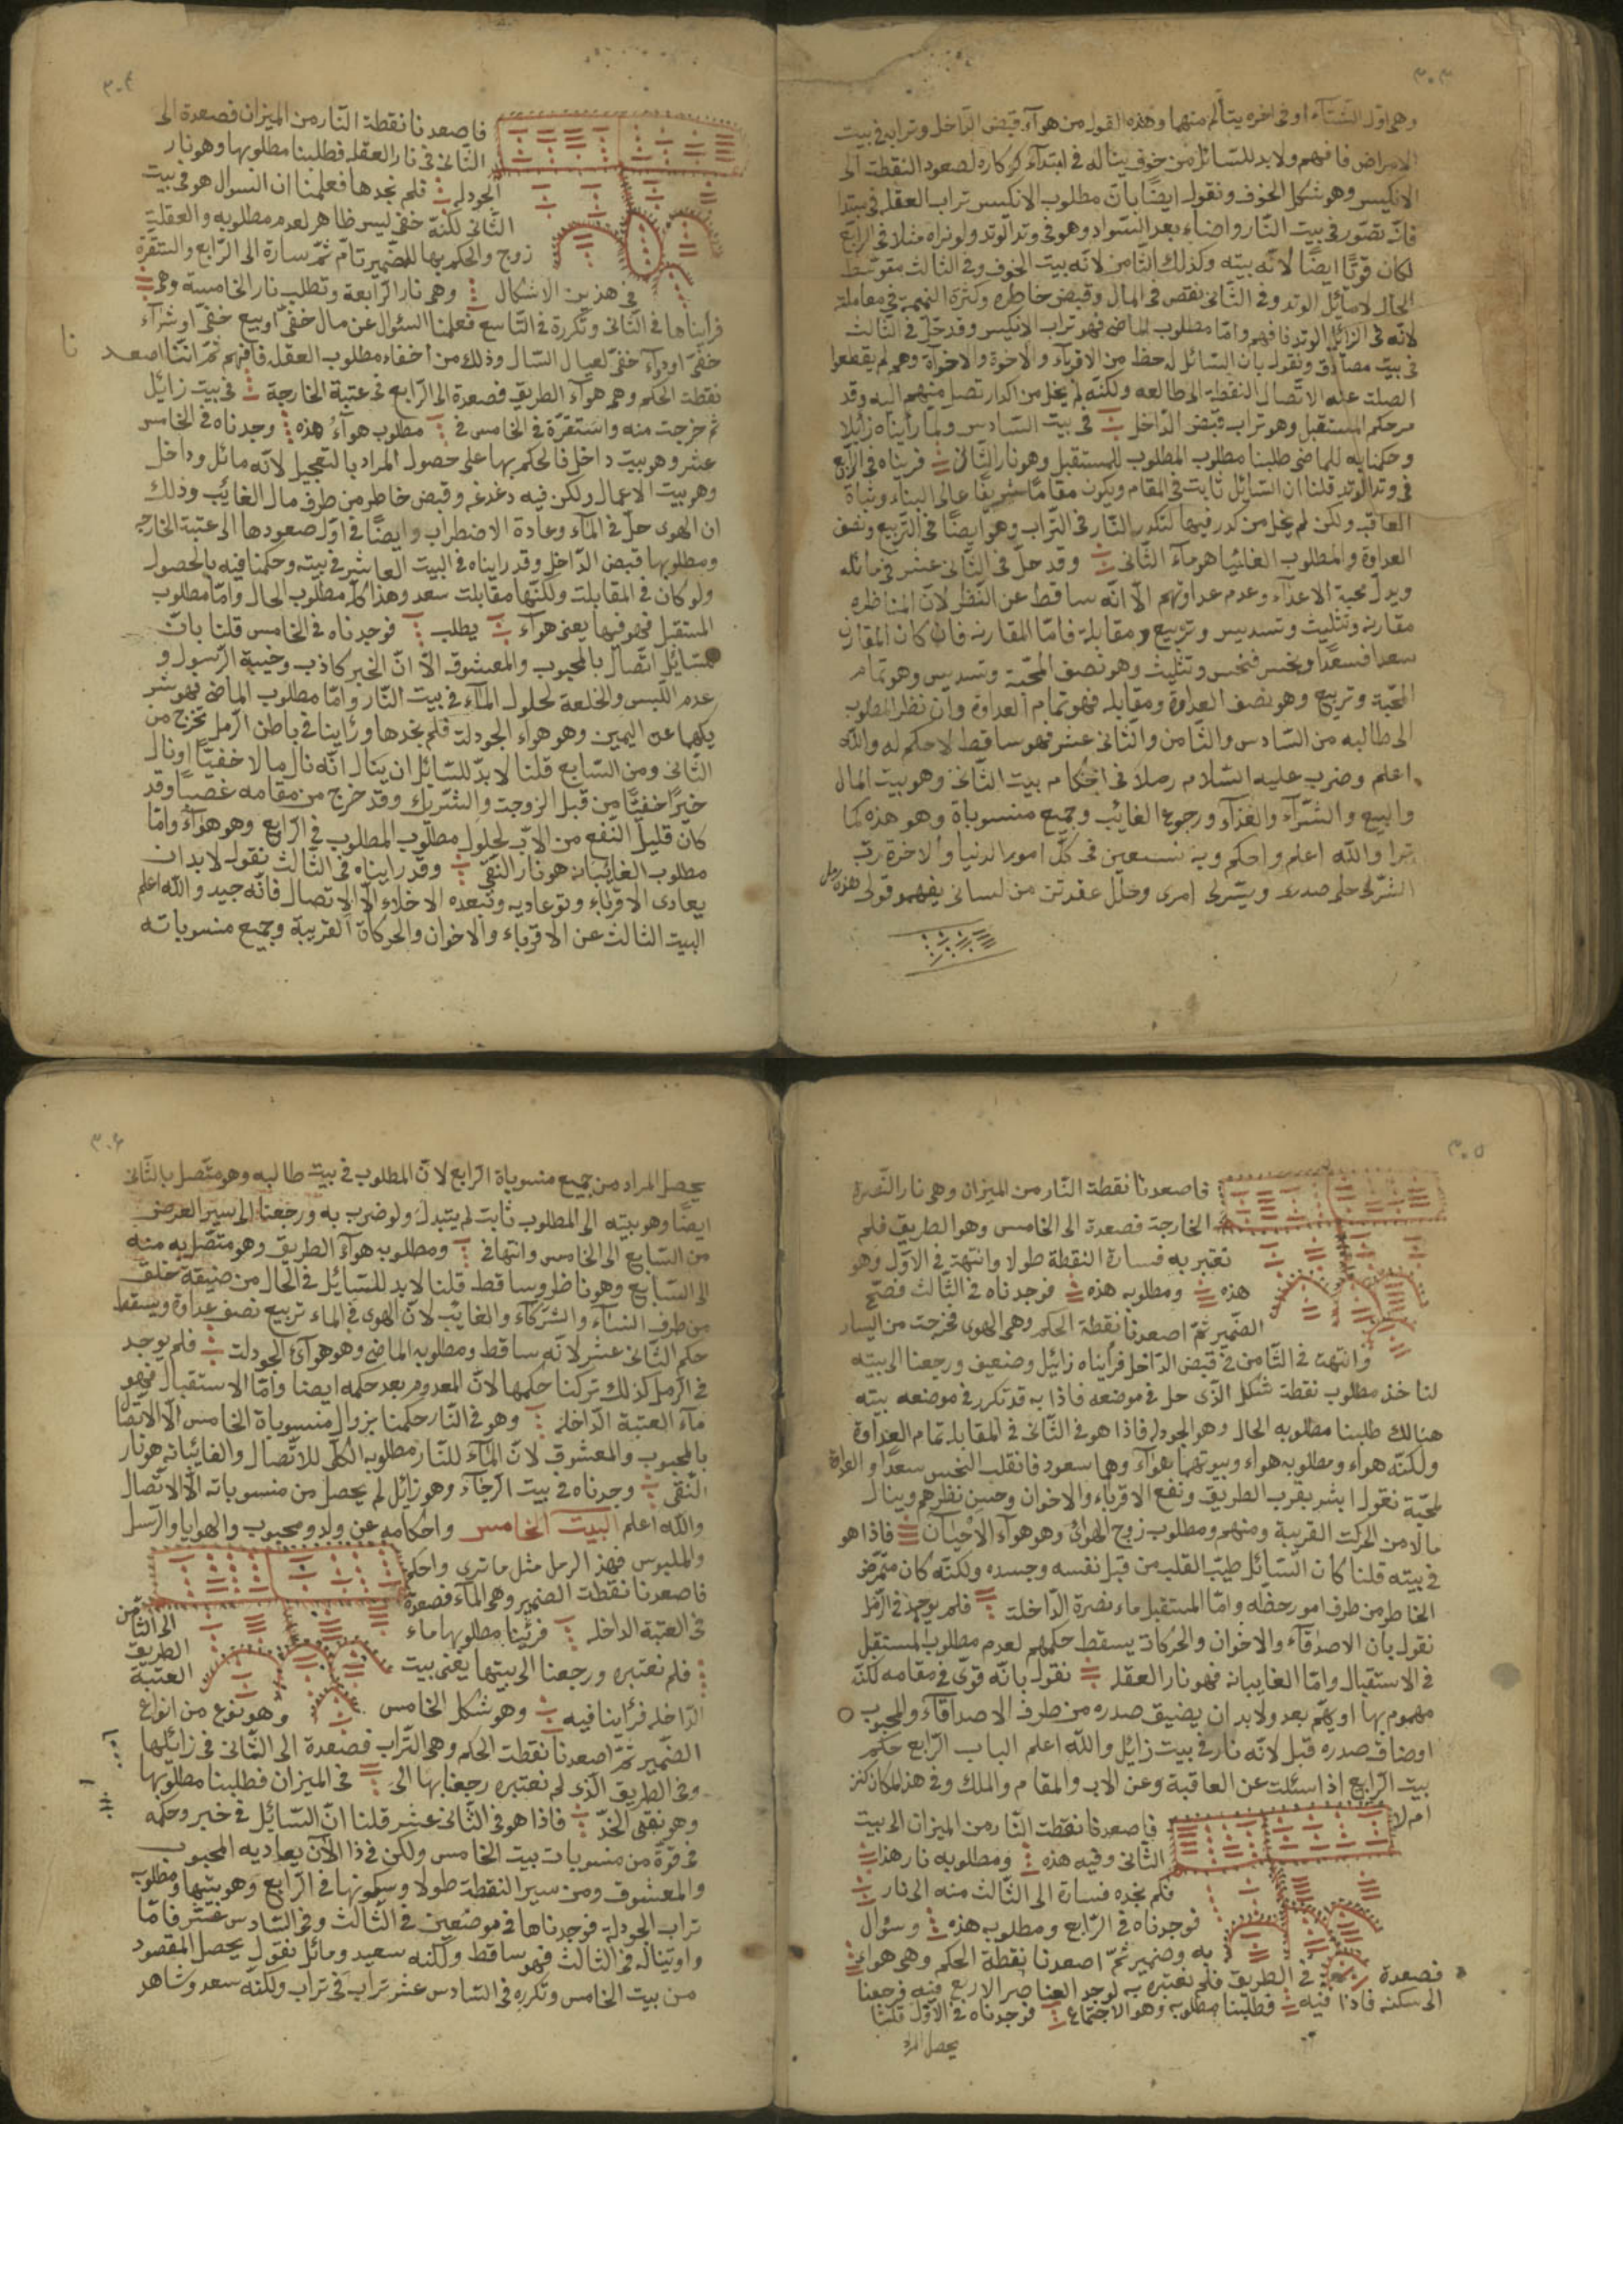 ٣٠٣
وهى اول الشتآء او فى اخره يتألم منهما وهذه القول من هوآء قبض الداخل وترابه فى بيت
الامراض فافهم ولابد للسّائل من خوف يناله فى ابتدآء كركاره لصعود النقطة الى
الانكيس وهو شكل الخوف ونقول ايضًا بانّ مطلوب الانكيس تراب العقله فى مبتدا
فانّه تصوّر فى بيت النّار واضاء بعد السّواد وهو فى وتد الوتد ولو نراه مثلا فى الرّابع
لكان قوتًا ايضًا لانّه بيته وكذلك الثّامن لانّه بيت الخوف وفى الثالث متوسّط
الحال لامائل الوتد وفى الثّانى نقص فى المال وقبض خاطره وكثرة التهمة فى معاملة
لانّه فى الزائل الوتد فافهم وامّا مطلوب الماضى فهو تراب الانكيس وقد حلّ فى الثّالث
فى بيت مصادق ونقول بأن السّائل له حظ من الاقربآء والاخوة والاخوآة وهم لم يقطعوا
الصلت عليه الاتّصال النقطة الى طالعه ولكنّه لم يخل من اكدار تصل منهم اليه وقد
مرحكم المستقبل وهو تراب قبض الدّاخل فى بيت السّادس ولمّا رأيناه زائلا
وحكمنا به للماضى طلبنا مطلوب المطلوب للمستقبل وهو نار الثّانى فريناه فى الرّابع
فى وتد الوتد قلنا ان السّائل ثابت فى المقام ويكون مقامًا شريفًا عالى البناء وثباة
العاقبه ولكن لم يخل من كدر فيها لتكدر النّار فى التّراب وهو ايضًا فى التّربيع ونصف
العداوة والمطلوب الغائبا هو مآء الثّانى وقد حلّ فى الثّانى عشر فى مائله
ويدل محبة الاعدآء وعدم عداوتهم الّا انّه ساقط عن النّظر لانّ المناظره
مقارنه وتثليث وتسديس وتربيع ومقابلة فامّا المقارنه فان كان المقارن
سعدا فسعدًا وبنحس فنحس وتثليث وهو نصف المحبّة وتسديس وهو تمام
المحبّة وتربيع وهو نصف العداوة ومقابله فهو تمام العداوة وان نظر المطلوب
الى طالبه من السّادس والثّامن والثّانى عشر فهو ساقط لاحكم له والله
اعلم وضرب عليه السّلام رملًا فى احكام بيت الثّانى وهو بيت المال
والبيع والشّرآء والغذآء ورجوع الغائب وجميع منسوباة وهو هذه كما
ترا والله اعلم واحكم وبه نستعين فى كلّ امور الدنيا والاخرة ربّ
اشرح لى صدرى ويسّرلى امرى وحلل عقدتن من لسانى يفهمو قولى هذه رمل
٣٠۴
فاصعدنا نقطة النّار من الميزان فصعدة الى
الثّانى فى نار العقله فطلبنا مطلوبها وهو نار
الجودله فلم نجدها فعلمنا ان السوال هو فى بيت
الثّانى لكنّه خفى ليس ظاهر لعدم مطلوبه والعقلة
زوج والحكم بها للضّمير تامّ ثمّ سارة الى الرّابع واستقرّة
فى هذين الاشكال وهى نار الرّابعة وتطلب نار الخامسة وهى
فرأيناها فى الثّانى وتكررة فى التّاسع فعلمنا السئوال عن مال خفىّ او بيع خفىّ او شرآء
خفىّ او دوآء خفىّ لعيال السّال وذلك من اخفاء مطلوب العقله فافهم ثمّ انّنا اصعدنا
نقطة الحكم وهى هوآء الطريق فصعدة الى الرّابع فى عتبة الخارجة فى بيت زايل
ثم خرجت منه واستقرّة فى الخامس فى مطلوب هوآء هذه وجدناه فى الخامس
عشر وهو بيت داخل فالحكم بها على حصول المراد بالتعجيل لانّه مائل وداخل
وهو بيت الاعمال ولكن فيه دغدغه وقبض خاطر من طرف مال الغائب وذلك
ان الهوى حلّ فى المآء وعادة الاضطراب وايضًا فى اوّل صعودها الى عتبة الخارجه
ومطلوبها قبض الدّاخل وقد رايناه فى البيت العاشر فى بيته وحكمنا فيه بالحصول
ولو كان فى المقابلة ولكنّها مقابلت سعد وهذا كلّه مطلوب الحال وامّا مطلوب
المستقبل فهو فيها يعنى هوآء يطلب فوجدناه فى الخامس قلنا بانّ
لسّائل اتّصال بالمحبوب والمعشوقه الّا انّ الخبر كاذب وخيبة الرّسول و
عدم اللّبس والخلعة لحلول المآء فى بيت النّار وامّا مطلوب الماضى فهو شر
يكما عن اليمين وهو هواء الجودلة فلم نجدها ورأينا فى باطن الرّمل تخرج من
الثّانى ومن السّابع قلنا لابدّ للسّائل ان ينال انّه نال مالا خفيّا او نال
خيرًا خفيًّا من قبل الزّوجت والشّريك وقد خرج من مقامه غصبيًا وقد
كان قليل النّفع من الابّ لحلول مطلوب المطلوب فى الرّابع وهو هوآء وامّا
مطلوب الغائبانه هو نار النّقىّ وقد رايناه فى الثّالث نقول لابد ان
يعادى الاقرباء وتوعاديه وتبعده الاخلاء الّا الاتّصال فانّه جيد والله اعلم
البيت الثالث عن الاقرباء والاخوان والحركاة القريبة وجميع منسوباته
٣٠٥
فاصعدنا نقطة النّار من الميزان وهى نار النّصرة
الخارجة فصعدة الى الخامس وهو الطريق فلم
نعتبر به فسارة النقطة طولا وانتهة فى الاوّل وهو
هذه ومطلوبه هذه فوجدناه فى الثّالث فصحّ
الضّمير ثمّ اصعدنا نقطة الحكم وهى الهوى فخرجت من اليسار
وانتهت فى الثّامن فى قبض الدّاخل فرأيناه زائيل وضعيف ورجعنا الى بيته
لناخذ مطلوب نقطة شكل الّذى حل فى موضعه فاذا به قد تكرر فى موضعه بيته
هنالك طلبنا مطلوبه الحال وهو الجودله فاذا هو فى الثّانى فى المقابله تمام العداوة
ولكنّه هواء ومطلوبه هواء وبيوتهما هوآء وهما سعود فانقلب النحس سعدًا والعداوة
لمحبّة نقول ابشر بقرب الطريق ونفع الاقرباء والاخوان وحسن نظرهم وينال
مالا من الحركت القريبة ومنهم ومطلوب زوج الهوائ وهو هوآء الاحيان فاذا هو
فى بيته قلنا كان السّائل طيّب القلب من قبل نفسه وجسده ولكنّه كان متمرّض
الخاطر من طرف امور حظّه وامّا المستقبل ماء نصرة الدّاخلت فلم يوجد فى الرّمل
نقول بان الاصدقاء والاخوان والحركات يسقط حكمهم لعدم مطلوب المستقبل
فى الاستقبال وامّا الغايبانه فهو نار العقله نقول بانّه قوىّ فى مقامه لكنّه
مهموم بها او يهتم بعد ولابد ان يضيق صدره من طرف الاصدقاء والمحبوب
اوضاق صدره قبل لانّه نار فى بيت زايل والله اعلم الباب الرّابع حكم
بيت الرّابع اذا سئلت عن العاقبة وعن الاب والمقام والملك وفى هذا المكان كنز
ام لا
فاصعدنا نقطت النّار من الميزان الى بيت
الثانى وفيه هذه ومطلوبه نار هذا
فلم نجده فسارة الى الثّالث منه الى نار
فوجدناه فى الرّابع ومطلوبه هذه وسئوال
به وضمير ثمّ اصعدنا نقطة الحكم وهى هواء
فصعدة فى الطريق فلم نعتبره به لوجد العناصر الاربع فيه فرجعنا
الى سكنه فاذا فيه فطلبنا مطلوبه وهو الاجتماع فوجدناه فى الاوّل قلنا
يحصل المراد
٣٠۶
يحصل المراد من جميع منسوباة الرّابع لانّ المطلوب فى بيت طالبه وهو متّصل بالثّانى
ايضًا وهو بيته الى المطلوب ثابت لم يتبدل ولو ضرب به ورجعنا الى سير العرضى
من السّابع الى الخامس وانتهافى ومطلوبه هوآء الطريق وهو متّصل به منه
الى السّابع وهو ناظر وساقط قلنا لابد للسّايل فى الحال من ضيقة خلق
من طرف النساء والشركاء والغايب لانّ الهوى فى الماء تربيع نصف عداوة ويسقط
حكم الثّانى عشر لانّه ساقط ومطلوبه الماضى وهو هوآئ الجودلت فلم يوجد
فى الرّمل كذلك تركنا حكمها لانّ المعدوم بعد حكمه ايضا وامّا الاستقبال فهو
مآء العتبة الدّاخلة وهو فى النّار حكمنا بزوال منسوباة الخامس الّا الاتّصال
بالمحبوب والمعشوق لانّ المآء للنّار مطلوبه الكلّى للاتّصال والغائبانه هو نار
النّقى وجدناه فى بيت الرّجآء وهو زائل لم يحصل من منسوباته الّا الاتّصال
والله اعلم البيت الخامس واحكامه عن ولد ومحبوب والهدايا والرّسل
والملبوس فهذ الرمل مثل ماترى واحكم
فاصعدنا نقطت الضمير وهى المآء فصعدة
فى العتبة الداخله فرئينا مطلوبها ماء
الى الثّامن
الطريق
فلم نعتبره ورجعنا الى بيتها يعنى بيت
العتبة
الدّاخله فرأينا فيه وهو شكل الخامس
وهو نوع من انواع
الضّمير ثمّ اصعدنا نقطت الحكم وهى التّراب فصعدة الى الثّانى فى زائلها
وفى الطريق الّذى لم نعتبره رجعنا بها الى فى الميزان فطلبنا مطلوبها
وهو نقىّ الخدّ فاذا هو فى الثّانى عشر قلنا انّ السّائل فى خير وحكمه
فى قوّة من منسوبات بيت الخامس ولكن فى ذا الآن يعاديه المحبوب
والمعشوق ومن سير النقطة طولا وسكونها فى الرّابع وهو بيتها ومطلوبه
تراب الجودله فوجدناها فى موضعين فى الثّالث وفى السّادس عشر فامّا
واوتيناله فى الثالث فهو ساقط ولكنه سعيد ومائل نقول يحصل المقصود
من بيت الخامس وتكرره فى السّادس عشر تراب فى تراب ولكنّه سعد وشاهد